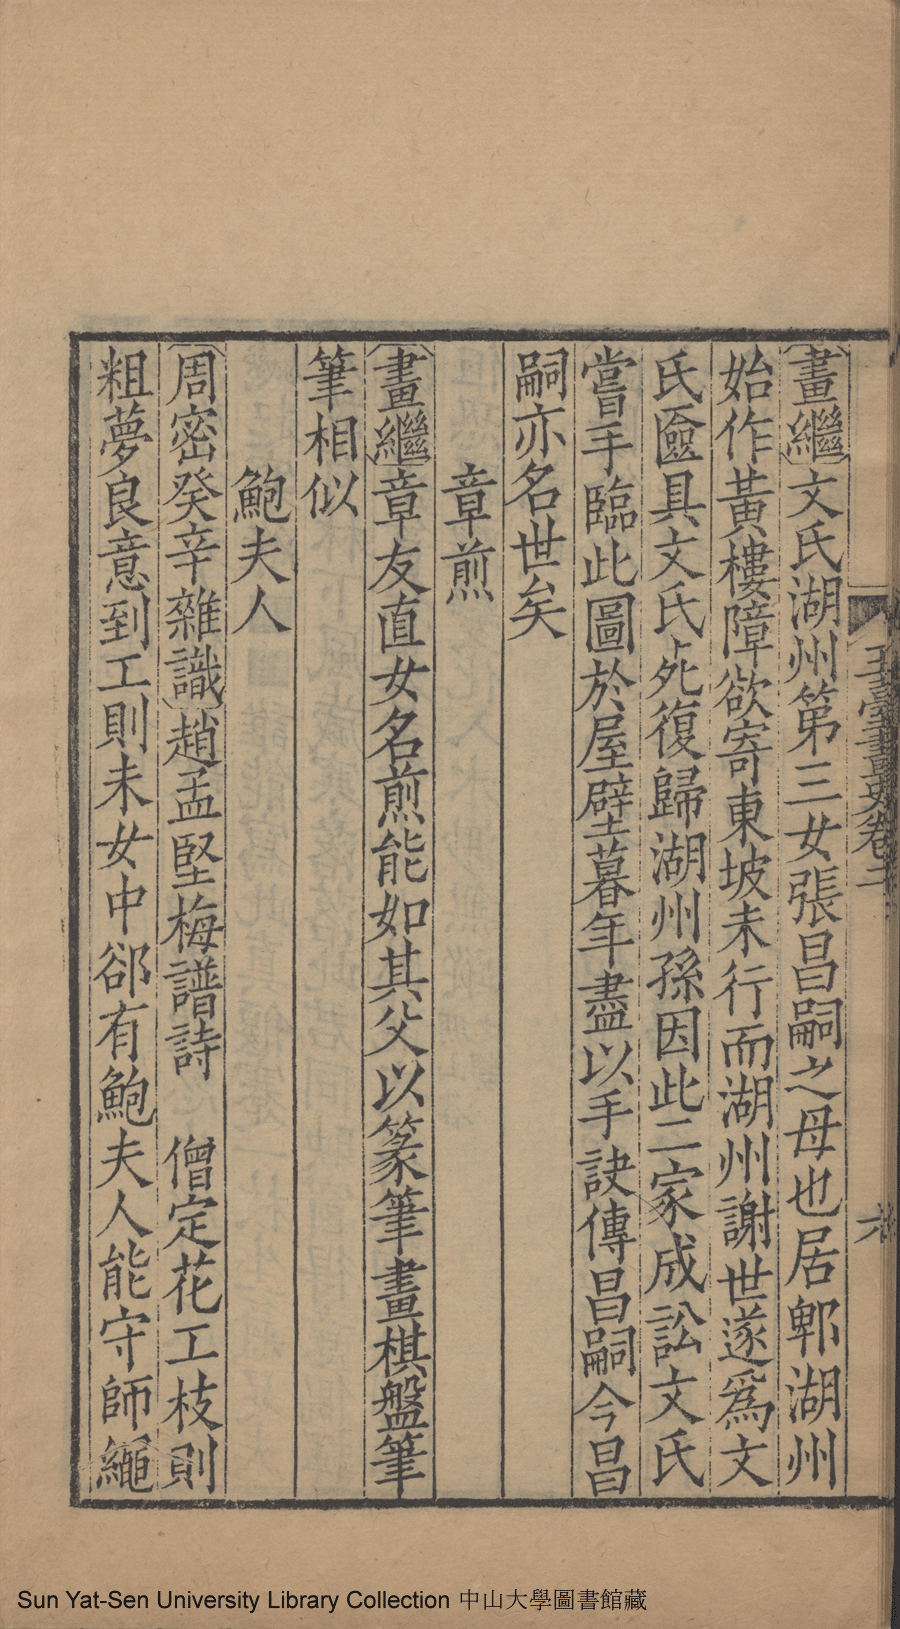 玉臺畫史卷二
六
畫繼文氏湖州第三女張昌嗣之母也居郫湖州
始作黃樓障欲寄東坡未行而湖州謝世遂爲文
氏匳具文氏死復歸湖州孫因此二家成訟文氏
嘗手臨此圖於屋壁暮年盡以手訣傳昌嗣今昌
嗣亦名世矣
章煎
畫繼章友直女名煎能如其父以篆筆畫棋盤筆
筆相似
鮑夫人
周密癸辛雜識趙孟堅梅譜詩　僧定花工枝則
粗夢良意到工則未女中郤有鮑夫人能守師繩
Sun Yat-Sen University Library Collection 中山大學圖書館藏